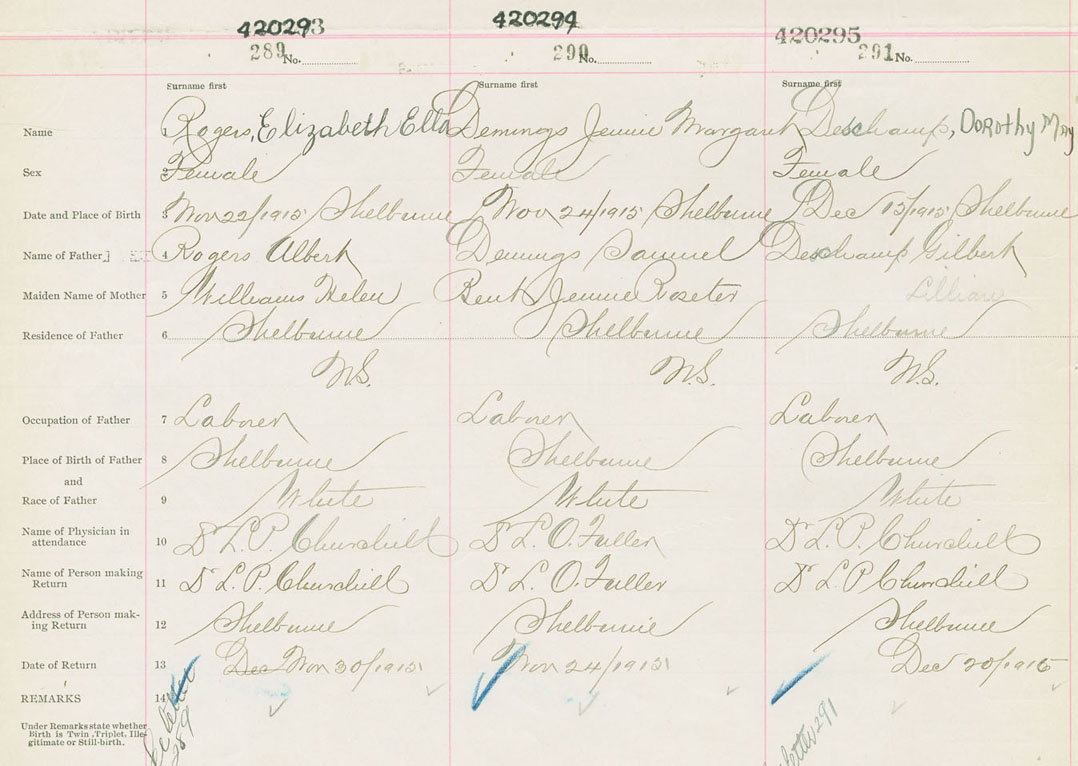 420293 420294 420295
289 No. 290 No. 291 No.
Surname first Surname first Surname first
Name Rogers, Elizabeth Ella Demings Jennie Margaret Deschamp, Dorothy May
Sex Female Female Female
Date and Place of Birth 3 Nov 22/1915 Shelburne Nov 24/1915 Shelburne Dec 15/1915, Shelburne
Name of Father 4 Rogers Albert Demings Samuel Deschamp Gilbert
Maiden Name of Mother 5 Williams Helen Bent Jennie Rozeter Lillian
Residence of Father 6 Shelburne Shelburne Shelburne
N.S. N.S. N.S.
Occupation of Father 7 Laborer Laborer Laborer
Place of Birth of Father 8 Shelburne Shelburne Shelburne
and
Race of Father 9 White White White
Name of Physician in
attendance 10 Dr L. P. Churchill Dr L. O. Fuller Dr L. P. Churchill
Name of Person making
Return 11 Dr L. P. Churchill Dr L. O. Fuller Dr L P Churchill
Address of Person mak-
ing Return 12 Shelburne Shelburne Shelburne
Date of Return 13 Dec Nov 30/1915 Nov 24/1915 Dec 20/1915
REMARKS 14
Under Remarks state whether
Birth is Twin, Triplet, Ille-
gitimate or Still-birth.
letter 289
letter 291